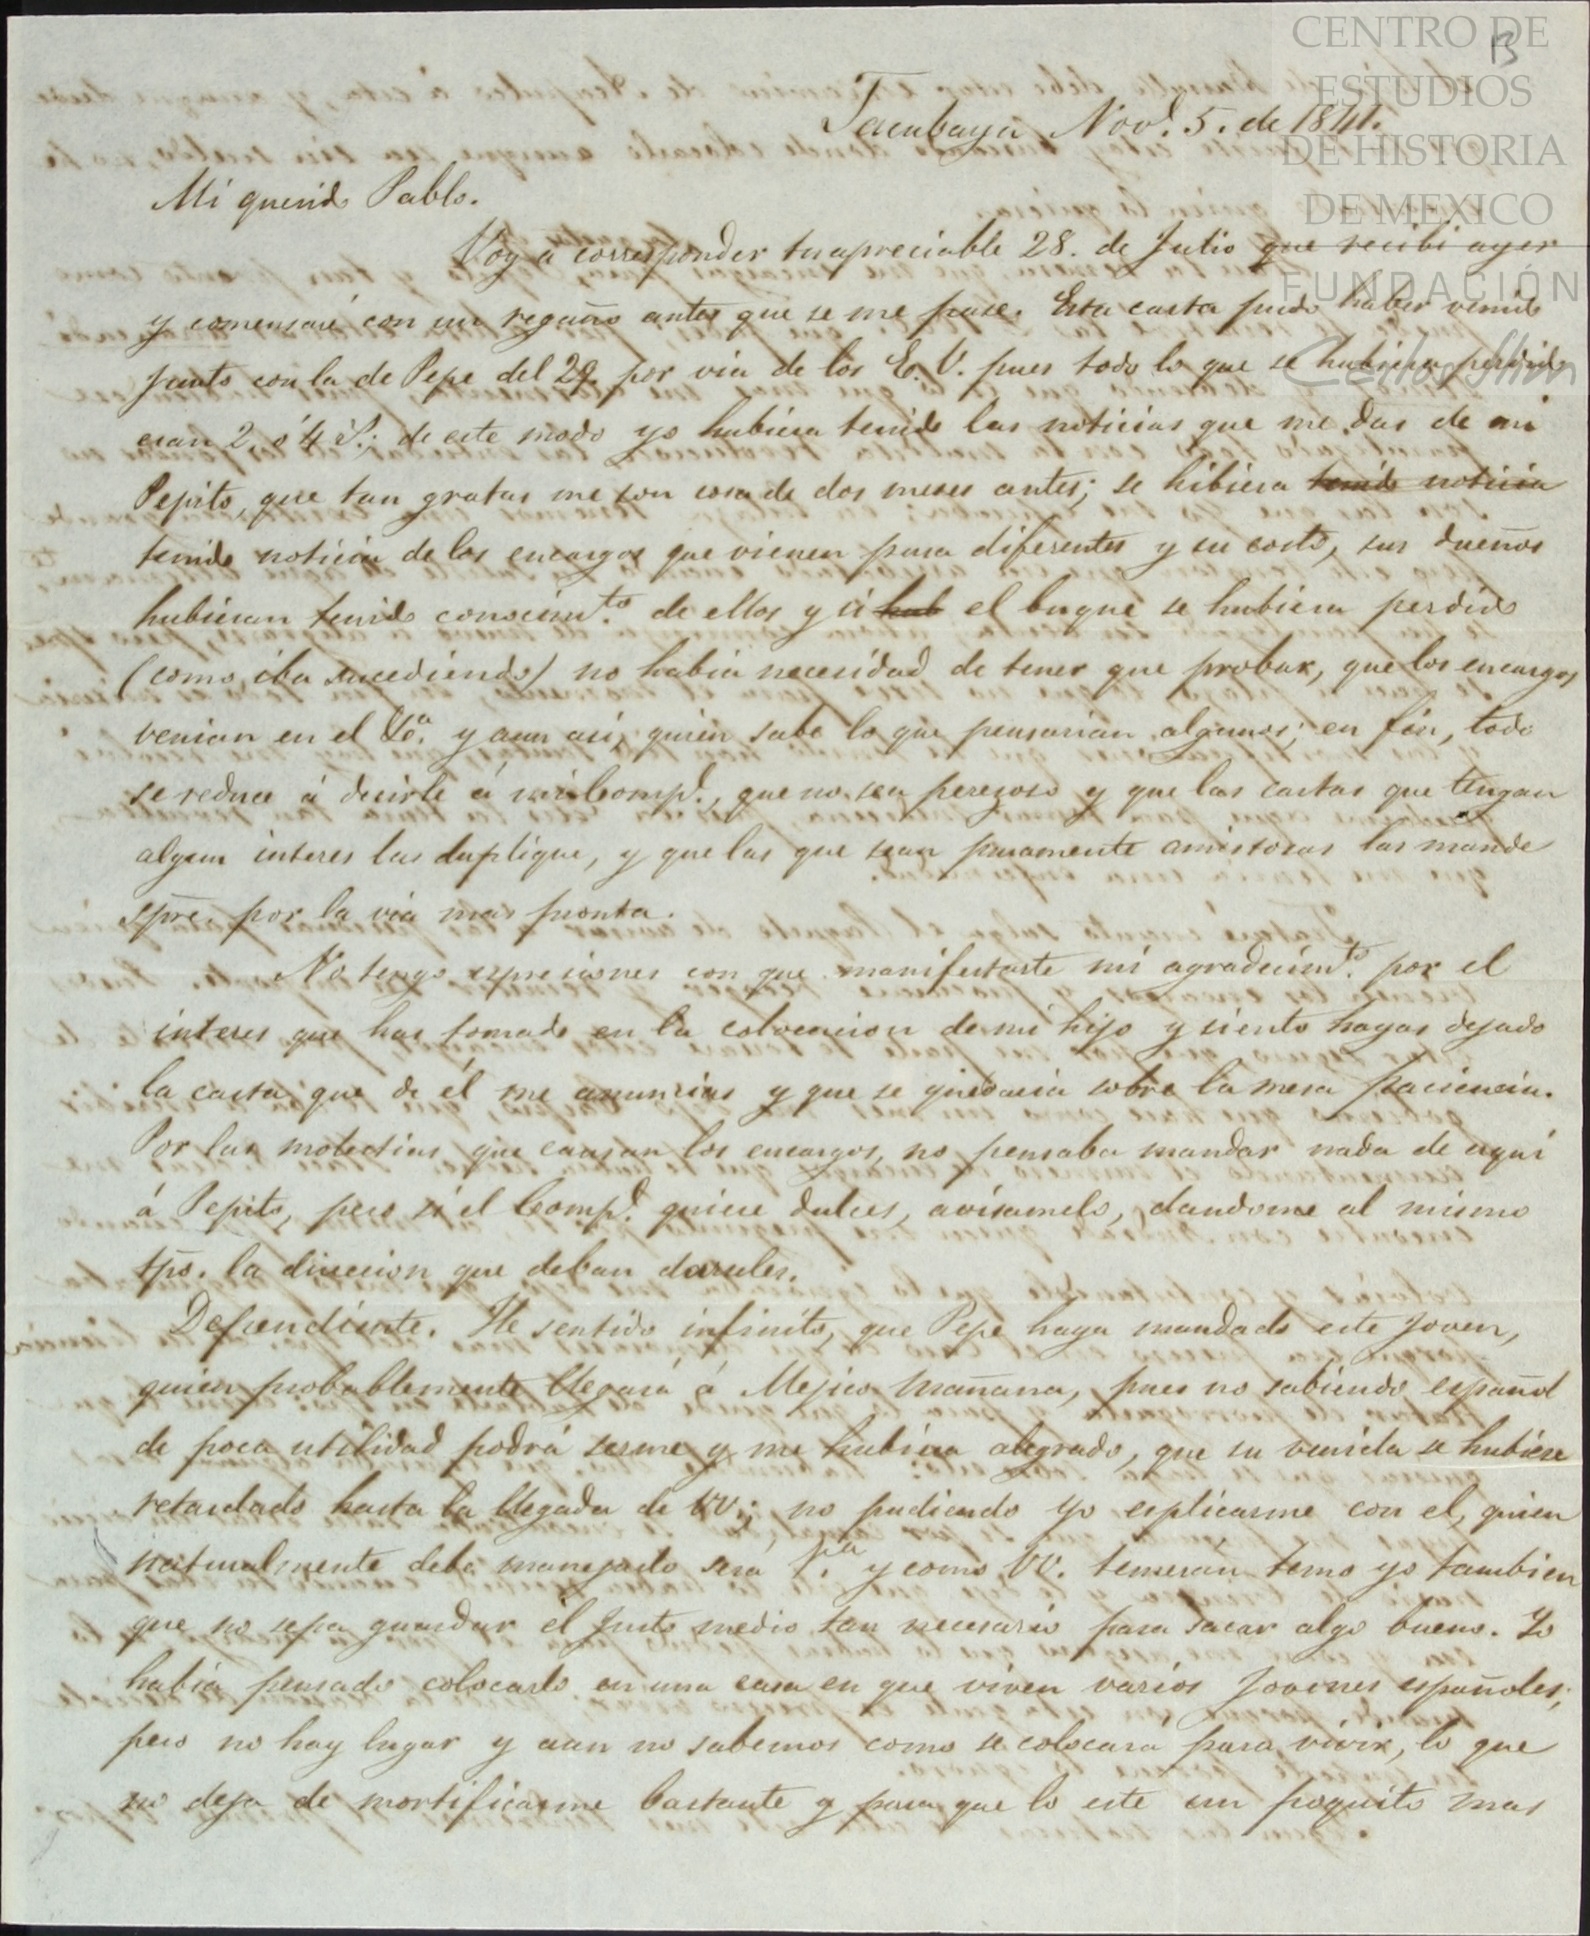 CENTRO DE
ESTUDIOS
DE HISTORIA
DE MEXICO
FUNDACIÓN
Carlos Slim
13
Tacubaya Novᵉ. 5. de 1841.
Mi querido Pablo.
Voy á corresponder tu apreciable 28. de Julio que recibi ayer
y comensaré con un regaño antes que se me pase. Esta carta pudo haber venido
junto con la de Pepe del 29. por via de los E. U. pues todo lo que se hubiera perdido
eran 2, ó 4 rˢ.; de este modo yo hubiera tenido las noticias que me das de mi
Pepito, que tan gratas me son cosa de dos meses antes; se hibiera tenido noticia
tenido noticia de los encargos que vienen para diferentes y su costo, sus dueños
hubieran tenido conocimᵗᵒ. de ellos y si hub el buque se hubiera perdido
(como iba sucediendo) no habia necesidad de tener que probar, que los encargos
venian en el Vᵃ. y aun asi, quien sabe lo que pensarian algunos; en fin, todo
se reduce á decirle á mi Compᵉ., que no sea perezoso y que las cartas que tengan
algun interes las duplique, y que las que sean puramente amistosas las mande
spre. por la via mas pronta.
No tengo expresiones con que manifestarte mi agradecimᵗᵒ. por el
interes que has tomado en la colocacion de mi hijo y siento hayas dejado
la carta que de él me anuncias y que se quedaria sobre la mesa paciencia.
Por las molestias que causan los encargos, no pensaba mandar nada de aqui
á Pepito, pero si el Compᵉ. quiere dulces, avisamelo, dandome al mismo
tpo. la direccion que deban darseles.
Dependiente. He sentido infinito, que Pepe haya mandado este joven,
quien probablemente llegará á Mejico mañana, pues no sabiendo español
de poca utilidad podrá serme y me hubiera alegrado, que su venida se hubiese
retardado hasta la llegada de VV.; no pudiendo yo esplicarme con el, quien
naturalmente debe manejarlo será Fᵃ. y como VV. temerán temo yo tambien
que no sepa guardar el justo medio tan necesario para sacar algo bueno. Yo
habia pensado colocarlo en una casa en que viven varios jovenes españoles;
pero no hay lugar y aun no sabemos como se colocará para vivir, lo que
no deja de mortificarme bastante y para que lo este un poquito mas